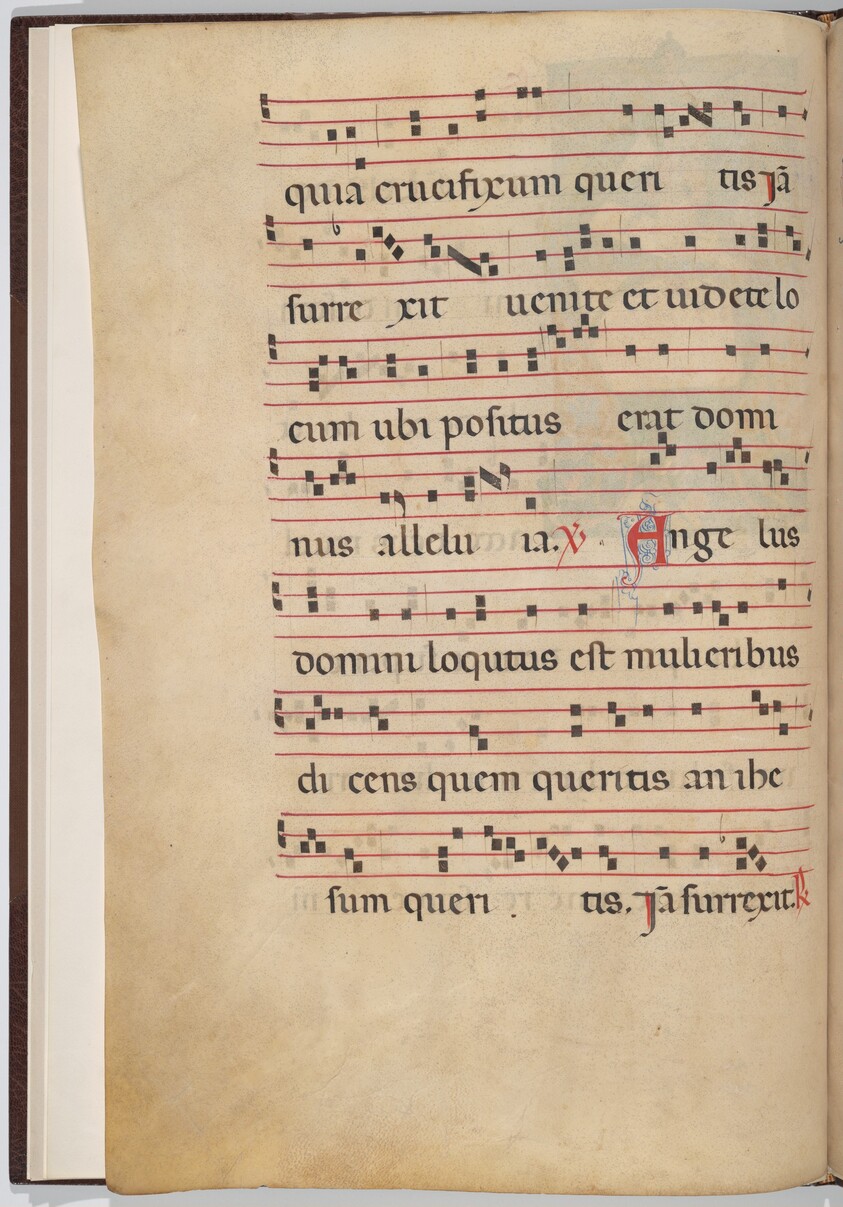 quia crucifixum queri tis Jã
surre xit uenite et uidete lo
cum ubi positus erat domi
nus allelu ia. ℣ Ange lus
domini loqutus est mulieribus
di cens quem queritis an ihe
sum queri tis. Jã surrexit. ℟